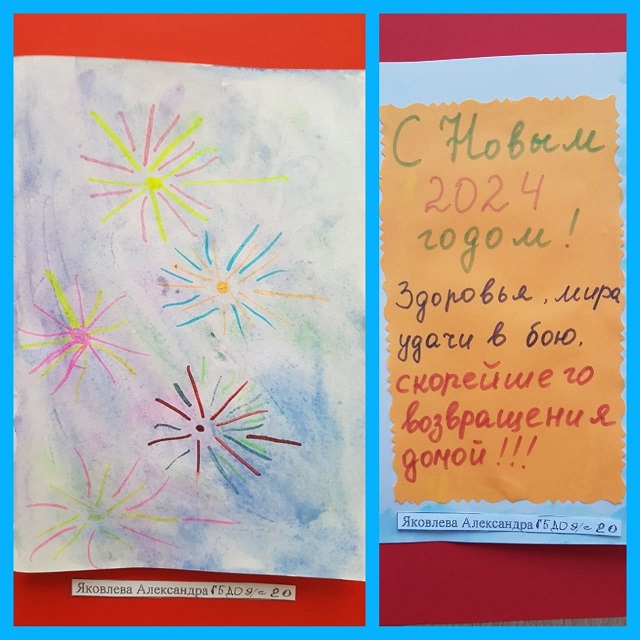 С Новым
2024
годом!
Здоровья, мира
удачи в бою,
скорейшего
возвращения
домой!!!
Яковлева Александра ГБДОЯ/с 20
Яковлева Александра ГБДО Я/с 20